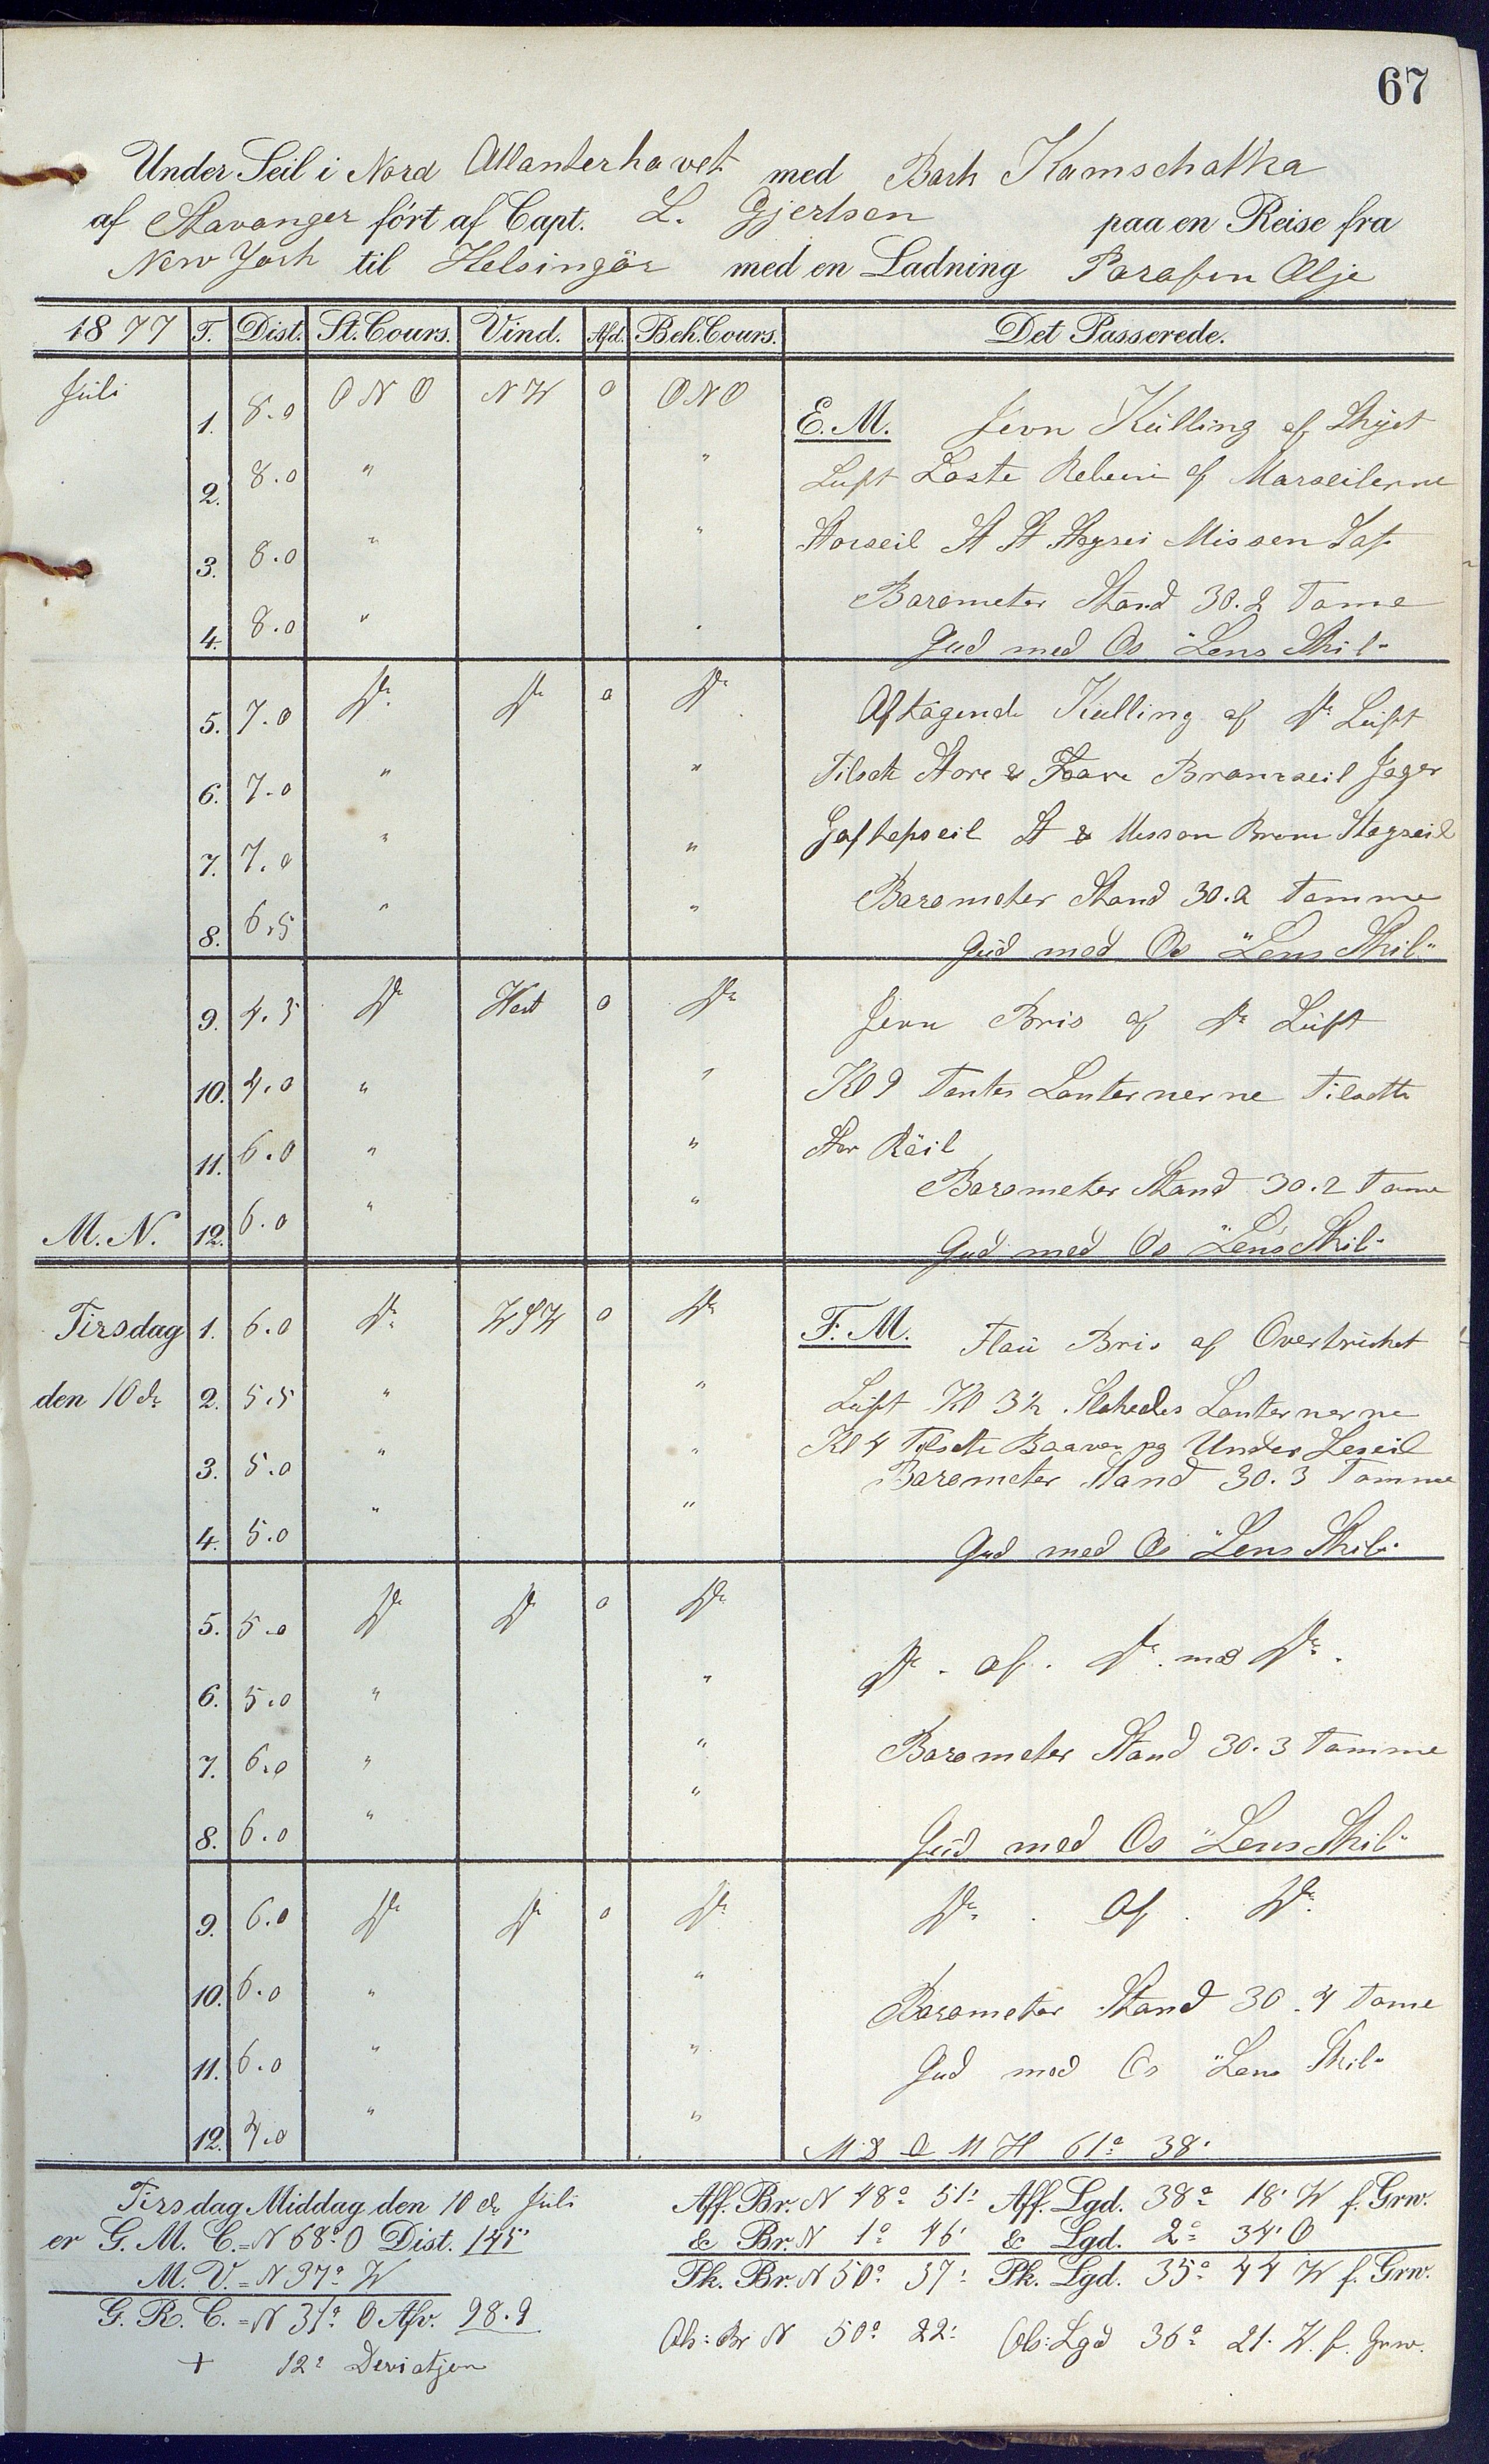 67
Under Seil i Nord Atlanterhavet med Bark Kamschatka
af Stavanger ført af Capt. L. Gjertsen paa en Reise fra
New York til Helsingör med en Ladning Parafin Olje
1877 T. Dist. St. Cours. Vind. Afd. Beh. Cours. Det Passerede.
Juli 1. 8.0 O N O N W 0 O N O E. M. Jevn Kulling af Skyet
2. 8.0 " " Luft Laste Rebene af Marseilerne
3. 8.0 " " Storseil St St Missen Gaf
4. 8.0 " " Barometer Stand 30.2 Tome
Gud med Os "Lens Skib"
5. 7.0 Do Do 0 Do Aftagende Kulling af Do Luft
6. 7.0 " " Tilsatte Store & Bramseil Jager
7. 7.0 " " Gaftopseil St & Messan Bram Stagseil
8. 6.5 " " Barometer Stand 30.2 Tomme
Gud med Os "Lens Skib"
9. 4.5 Do West 0 Do Jevn Bris af Do Luft
10. 4.0 " " Kl 9 Tentes Lanternerne Tilsatte
11. 6.0 " " Stor Röil
Barometer Stand 30.2 Tome
M. N. 12. 6.0 " " Gud med Os "Lens Skib"
Tirsdag 1. 6.0 Do W S W 0 Do F. M. Flau Bris af Overtrukket
den 10de 2. 5.5 " " Luft Kl 3½ Slukedes Lanternerne
3. 5.0 " " Kl 4 Tilsatte og Under Leseil
Barometer Stand 30.3 Tomme
4. 5.0 " " Gud med Os "Lens Skib"
5. 5.0 Do Do 0 Do
Do . af . Do . med Do .
6. 5.0 " "
7. 6.0 " " Barometer Stand 30.3 Tomme
8. 6.0 " " Gud med Os "Lens Skib"
9. 6.0 Do Do 0 Do Do . Af . Do
10. 6.0 " " Barometer Stand 30.4 Tome
11. 6.0 " " Gud med Os "Lens Skib"
12. 7.0 " " M H 61° 38'
Tirsdag Middag den 10de Juli Aff. Br. N 48° 51' Aff. Lgd. 38° 18' W f. Grw.
er G. M. C. = N 68° O Dist. 145' & Br. N 1° 46' & Lgd. 2° 34' O
M. V. = N 37° W Pk. Br. N 50° 37' Pk. Lgd. 35° 44 W f. Grw.
G. R. C. = N 31° O Afv. 98.9
Ob: Br N 50° 22' Ob: Lgd 36° 21' W. f. Grw.
+ 12° Deviatjon